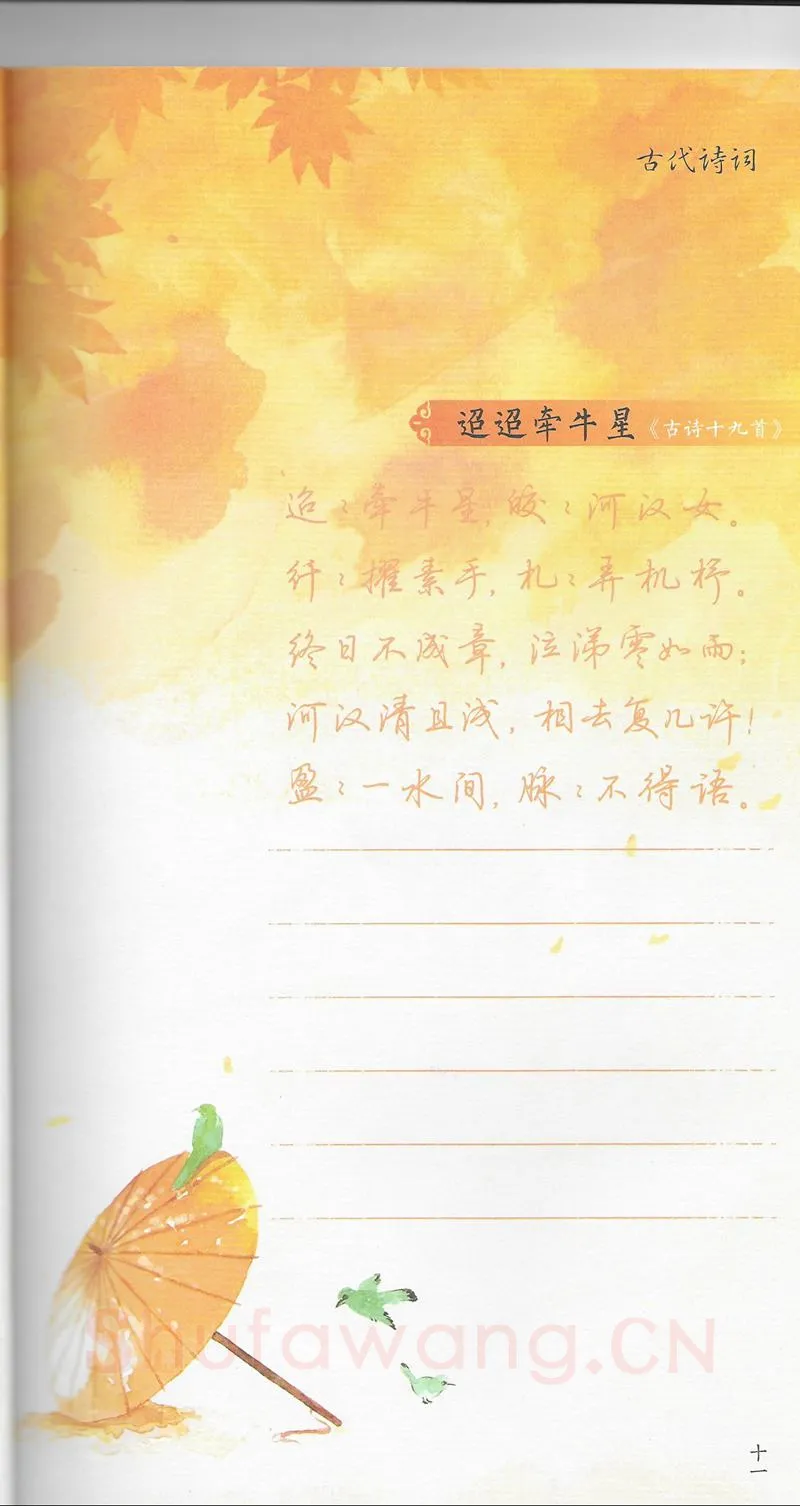 古代诗词
迢迢牵牛星《古诗十九首》
迢:牵牛星,皎:河汉女。
纤:擢素手,札:弄机杼。
终日不成章,泣涕零如雨;
河汉清且浅,相去复几许!
盈:一水间,脉:不得语。
Shufawang.CN
十一